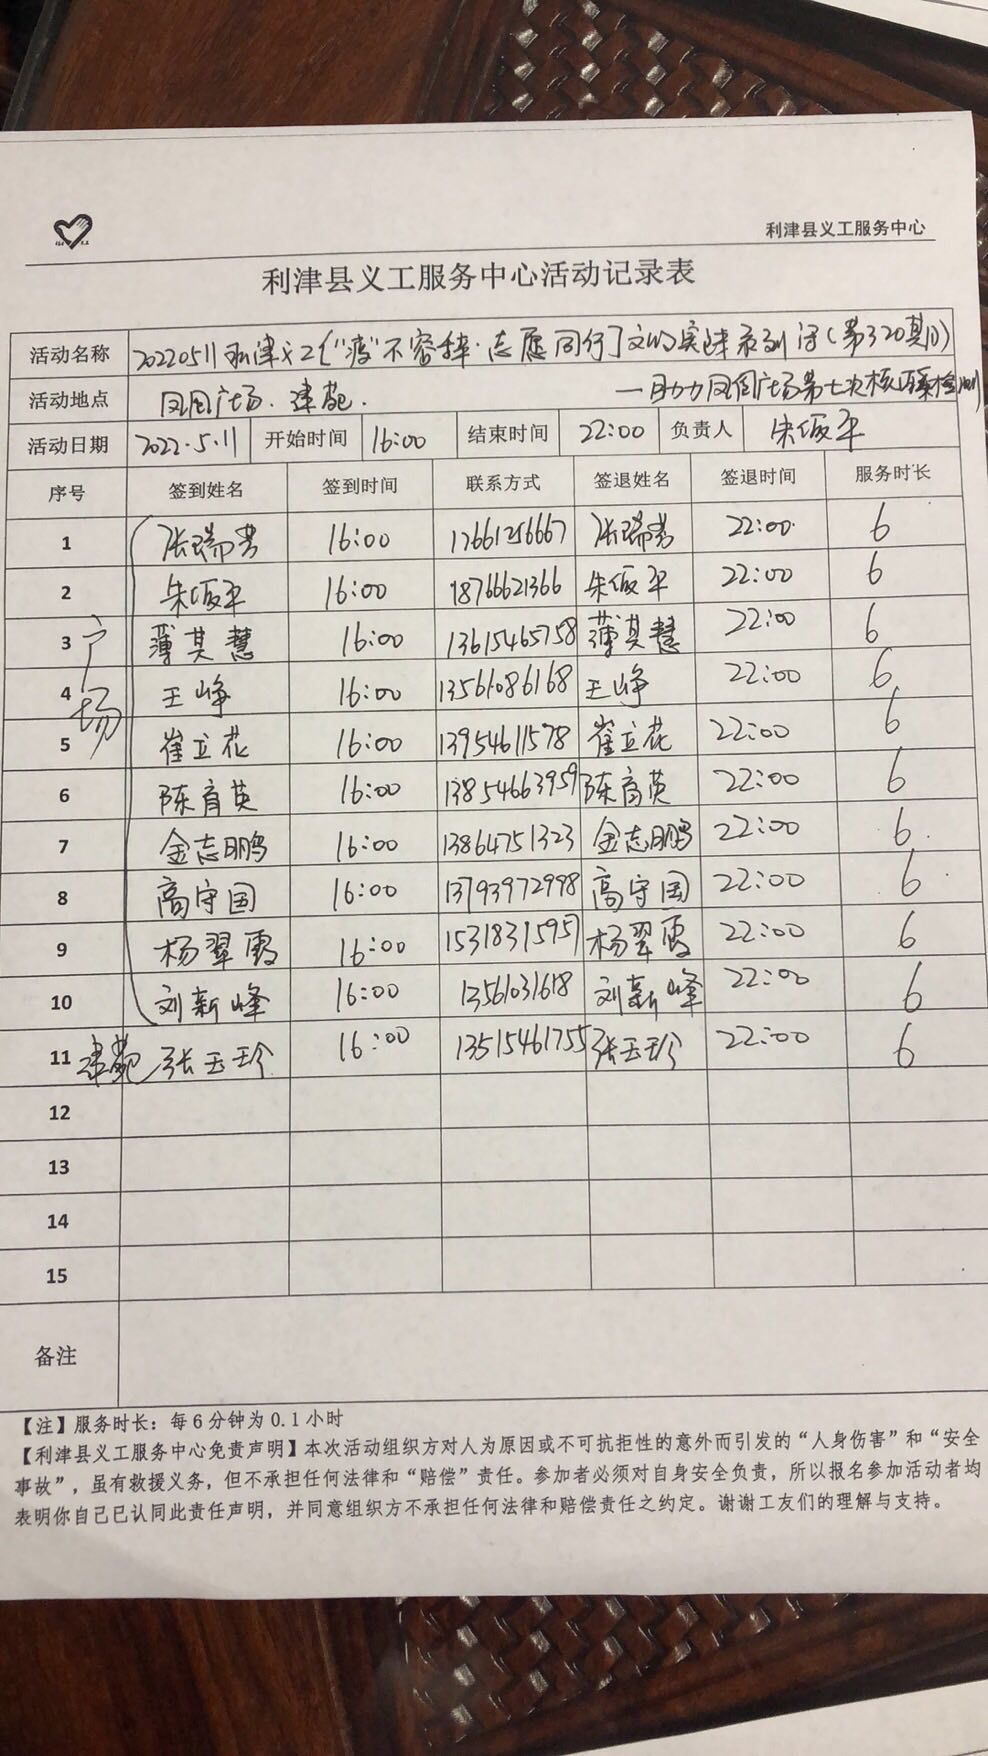 利津县义工服务中心
利津县义工服务中心活动记录表
活动名称 20220511利津义工《"疫"不容辞·志愿同行》文明实践系列活动(第320期)
——助力凤凰广场第七次核酸检测
活动地点 凤凰广场、津苑.
活动日期 2022.5.11 开始时间 16:00 结束时间 22:00 负责人 朱俊平
序号 签到姓名 签到时间 联系方式 签退姓名 签退时间 服务时长
广场
1 张瑞芳 16:00 17661256667 张瑞芳 22:00 6
2 朱俊平 16:00 18766621366 朱俊平 22:00 6
3 薄其慧 16:00 13615465758 薄其慧 22:00 6
4 王峥 16:00 13561086168 王峥 22:00 6
5 崔立花 16:00 13954611578 崔立花 22:00 6
6 陈育英 16:00 13854663959 陈育英 22:00 6
7 金志鹏 16:00 13864751323 金志鹏 22:00 6
8 高守国 16:00 13793972998 高守国 22:00 6
9 杨翠霞 16:00 15318315957 杨翠霞 22:00 6
10 刘新峰 16:00 13561031618 刘新峰 22:00 6
11 津苑 张玉珍 16:00 13515461755 张玉珍 22:00 6
12
13
14
15
备注
【注】服务时长：每6分钟为0.1小时
【利津县义工服务中心免责声明】本次活动组织方对人为原因或不可抗拒性的意外而引发的“人身伤害”和“安全
事故”，虽有救援义务，但不承担任何法律和“赔偿”责任。参加者必须对自身安全负责，所以报名参加活动者均
表明你自己已认同此责任声明，并同意组织方不承担任何法律和赔偿责任之约定。谢谢工友们的理解与支持。